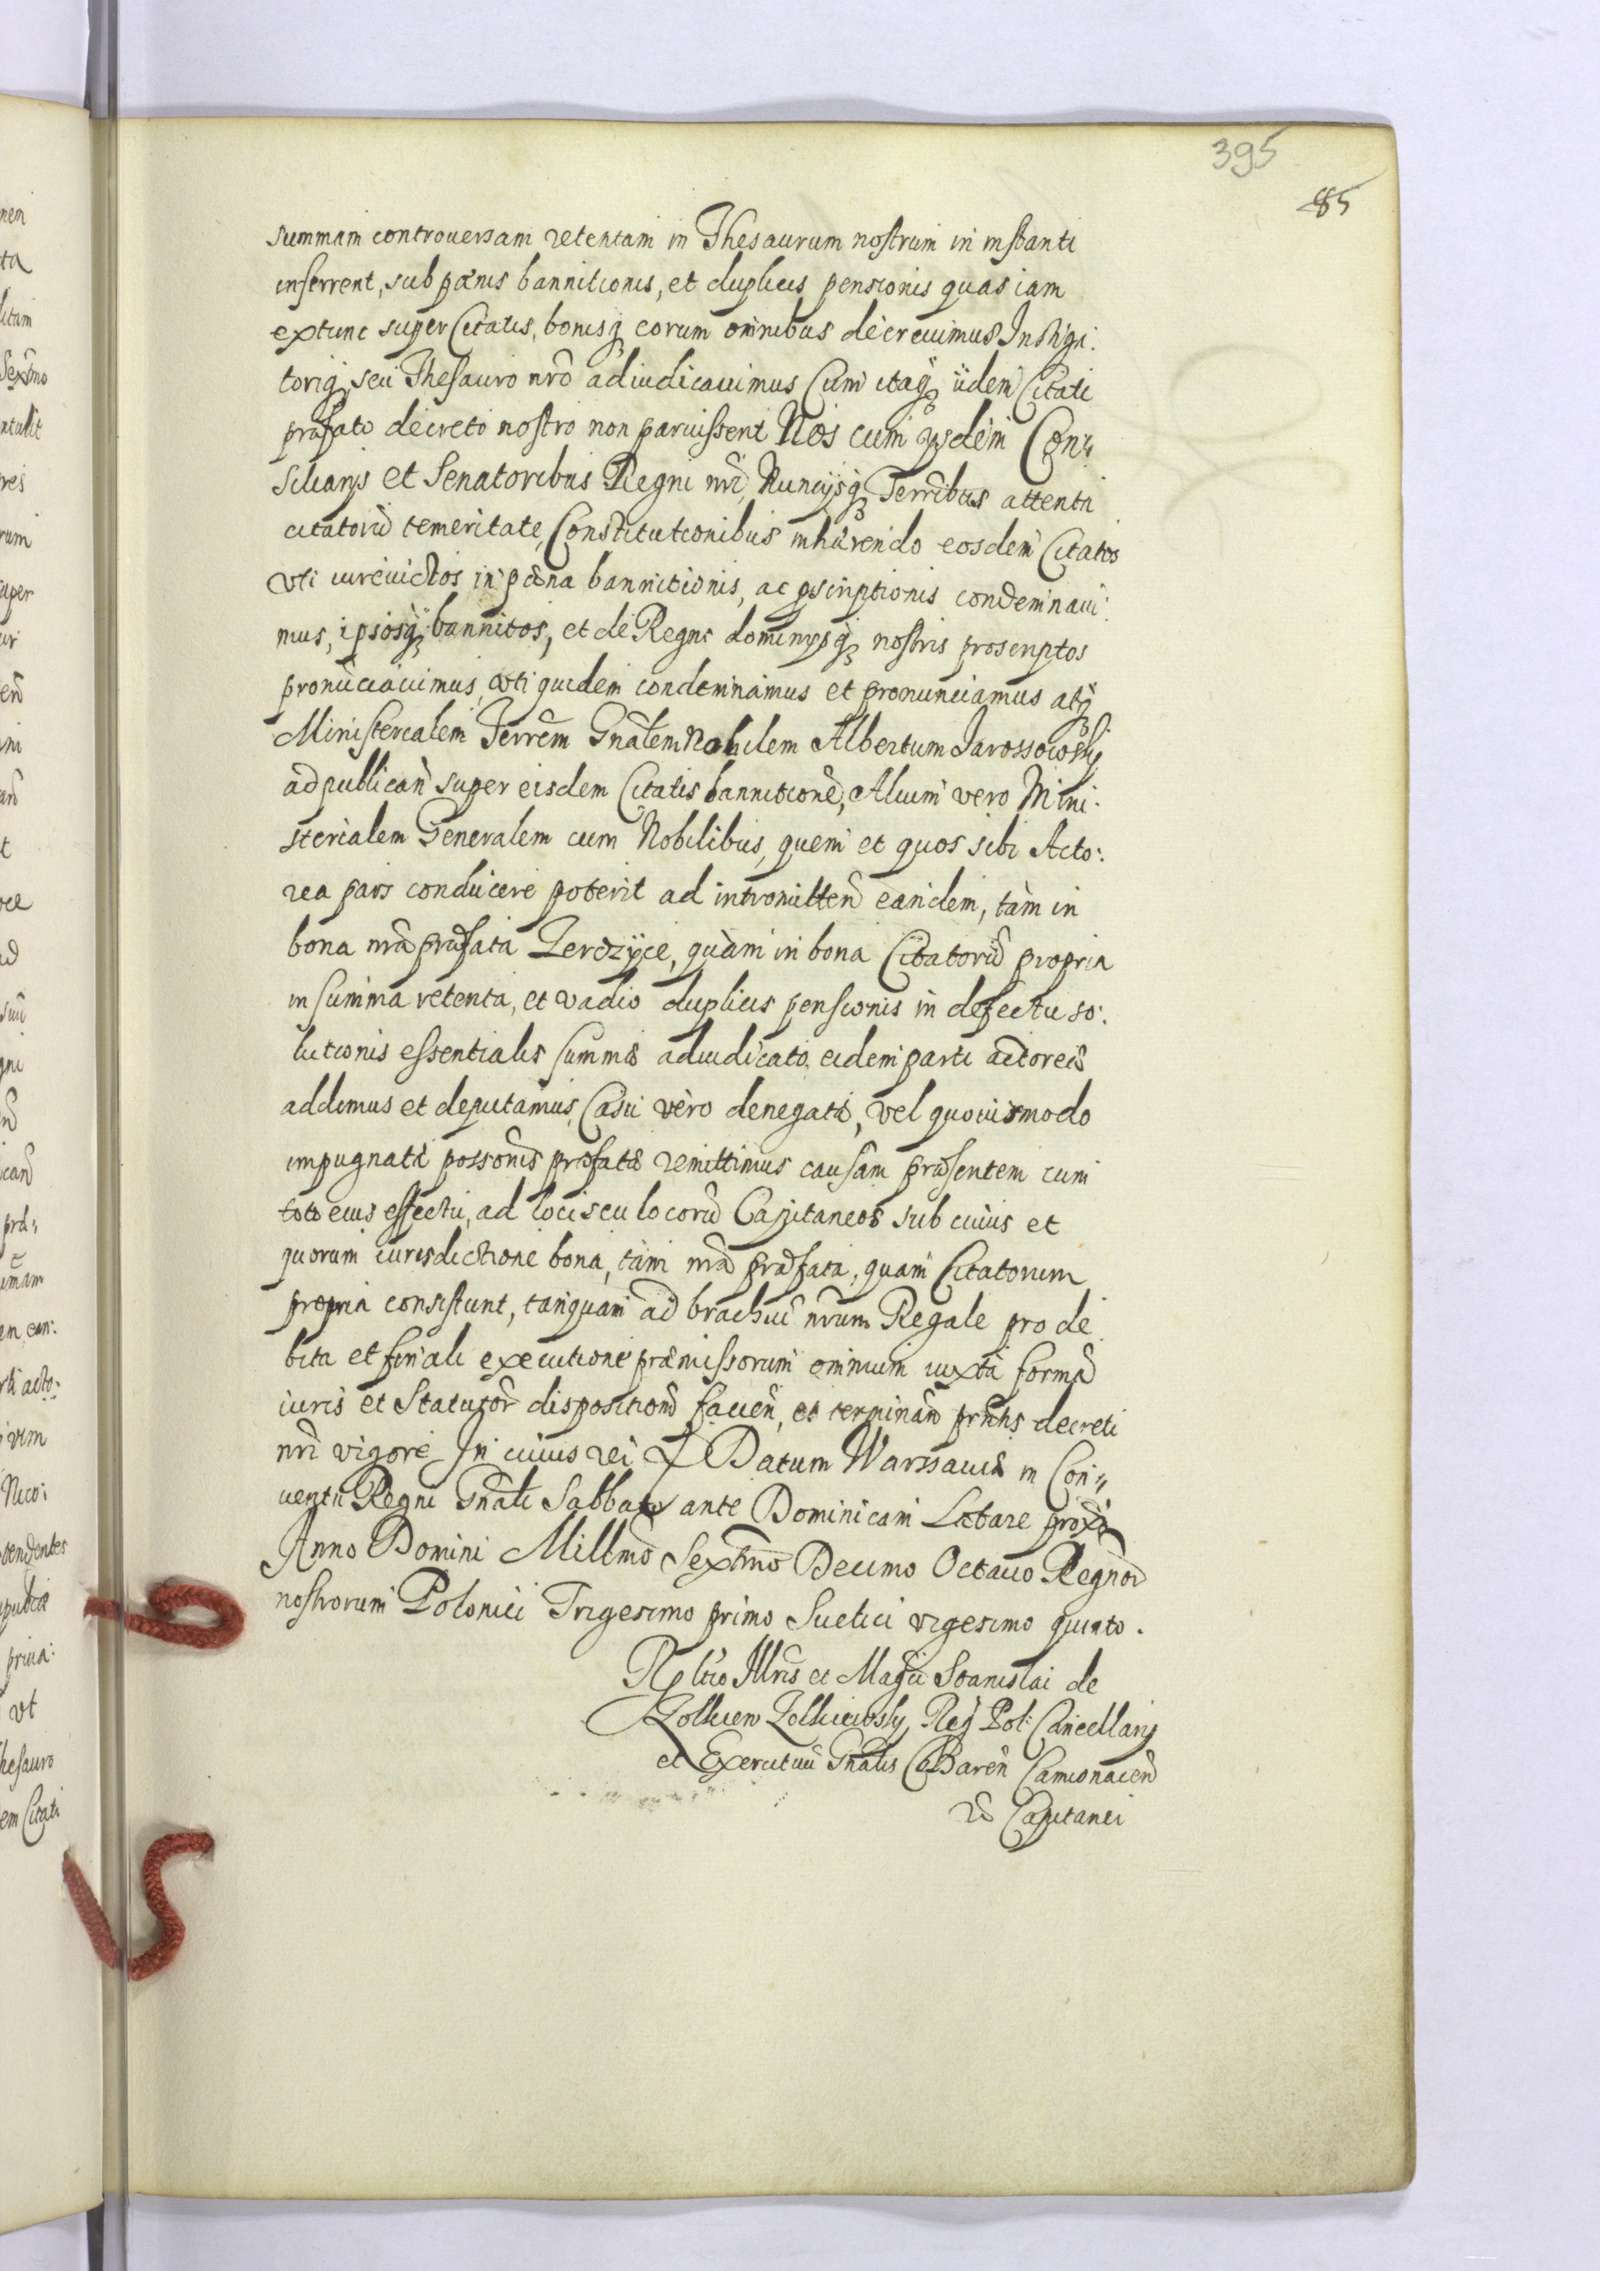 395
85
summam controuersam retentam in Thesaurum nostrum in instanti
inferrent, sub pœnis bannitionis, et duplicis pensionis quas iam
extunc super Citatis, bonisq̃ eorum omnibus decreuimus Instiga:
toriq̃ seu Thesauro nr̃o adiudicauimus Cum itaq̃ iidem Citati
præfato decreto nostro non paruissent Nos cum ysdem Con:
siliarys et Senatoribus Regni nr̃i, Nuncijsq̃ Terr̃ibus attenta
citatorũ temeritate, Constitutionibus inhærendo eosdem Citatos
vti iureuictos in pœna bannitionis, ac pscriptionis condemnaui:
mus, ipsosq̃ bannitos, et de Regno dominysq̃ nostris proscriptos
pronũciauimus, vti quidem condemnamus et pronunciamus atq̃
Ministerialem Terrẽm Gñalem Nobilem Albertum Jarossowsky
ad publicañ super eisdem Citatis bannitionẽ, Alium vero Mini:
sterialem Generalem cum Nobilibus, quem et quos sibi Acto:
rea pars conducere poterit ad intromittenđ eandem, tàm in
bona nr̃a præfata Zerdzÿce, quàm in bona Citatorũ propria
in summa retenta, et vadio duplicis pensionis in defectu so:
lutionis essentialis summæ adiudicato, eidem parti actoreæ
addimus et deputamus, Casu vèro denegatæ, vel quouismodo
impugnatæ possonis præfatæ remittimus causam præsentem cum
toto eius effectu, ad loci seu locorũ Capitaneos sub cuius et
quorum iurisdictione bona, tàm nr̃a præfata, quam Citatorum
propria consistunt, tanquam ad brachiũ nr̃um Regale pro de
bita et finali executione præmissorum omnium iuxtà formã
iuris et Statutor̃ dispositionẽ facieñ, et terminanđ pr̃ntis decreti
nr̃i vigore In cuius rei & Datum Warssauiæ in Con:
uentu Regni Gñali Sabbato ante Dominicam Lætare proxã
Anno Domini Millmõ Sextmõ Decimo Octauo Regnor̃
nostrorum Polonici Trigesimo primo Suetici vigesimo quinto.
Rltio Illris et Magci Stanislai de
Zolkiew Zolkiewsky, Reg̃ Pol: Cancellarij
et Exercituũ Gñalis Bareñ Camionacen̄
&c Capitanei